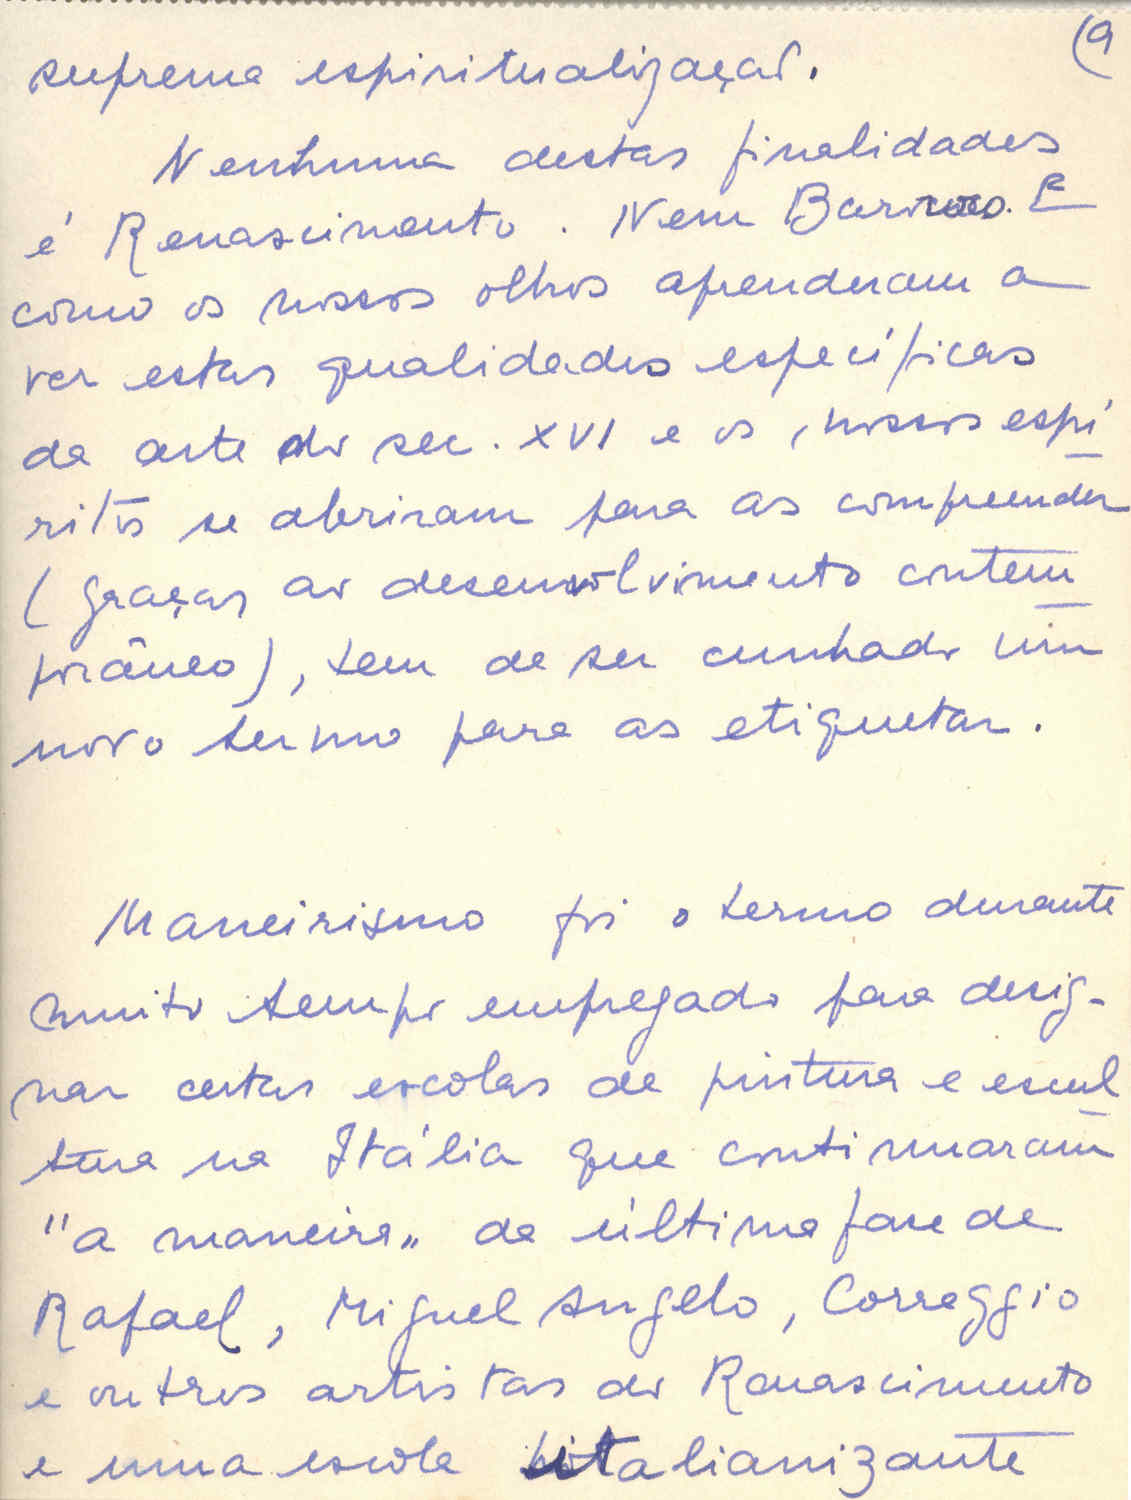 (9
suprema espiritualização.
Nenhuma destas finalidades
é Renascimento. Nem Barroco. E
como os nossos olhos aprenderam a
ver estas qualidades específicas
da arte do sec. XVI e os nossos espí
ritos se abriram para as compreender
(graças ao desenvolvimento contem
porâneo), tem de ser cunhado um
novo termo para as etiquetar.
Maneirismo foi o termo durante
muito tempo empregado para desig-
nar certas escolas de pintura e escul
tura na Itália que continuaram
"a maneira" da última fase de
Rafael, Miguel Angelo, Correggio
e outros artistas do Renascimento
e uma escola italianizante